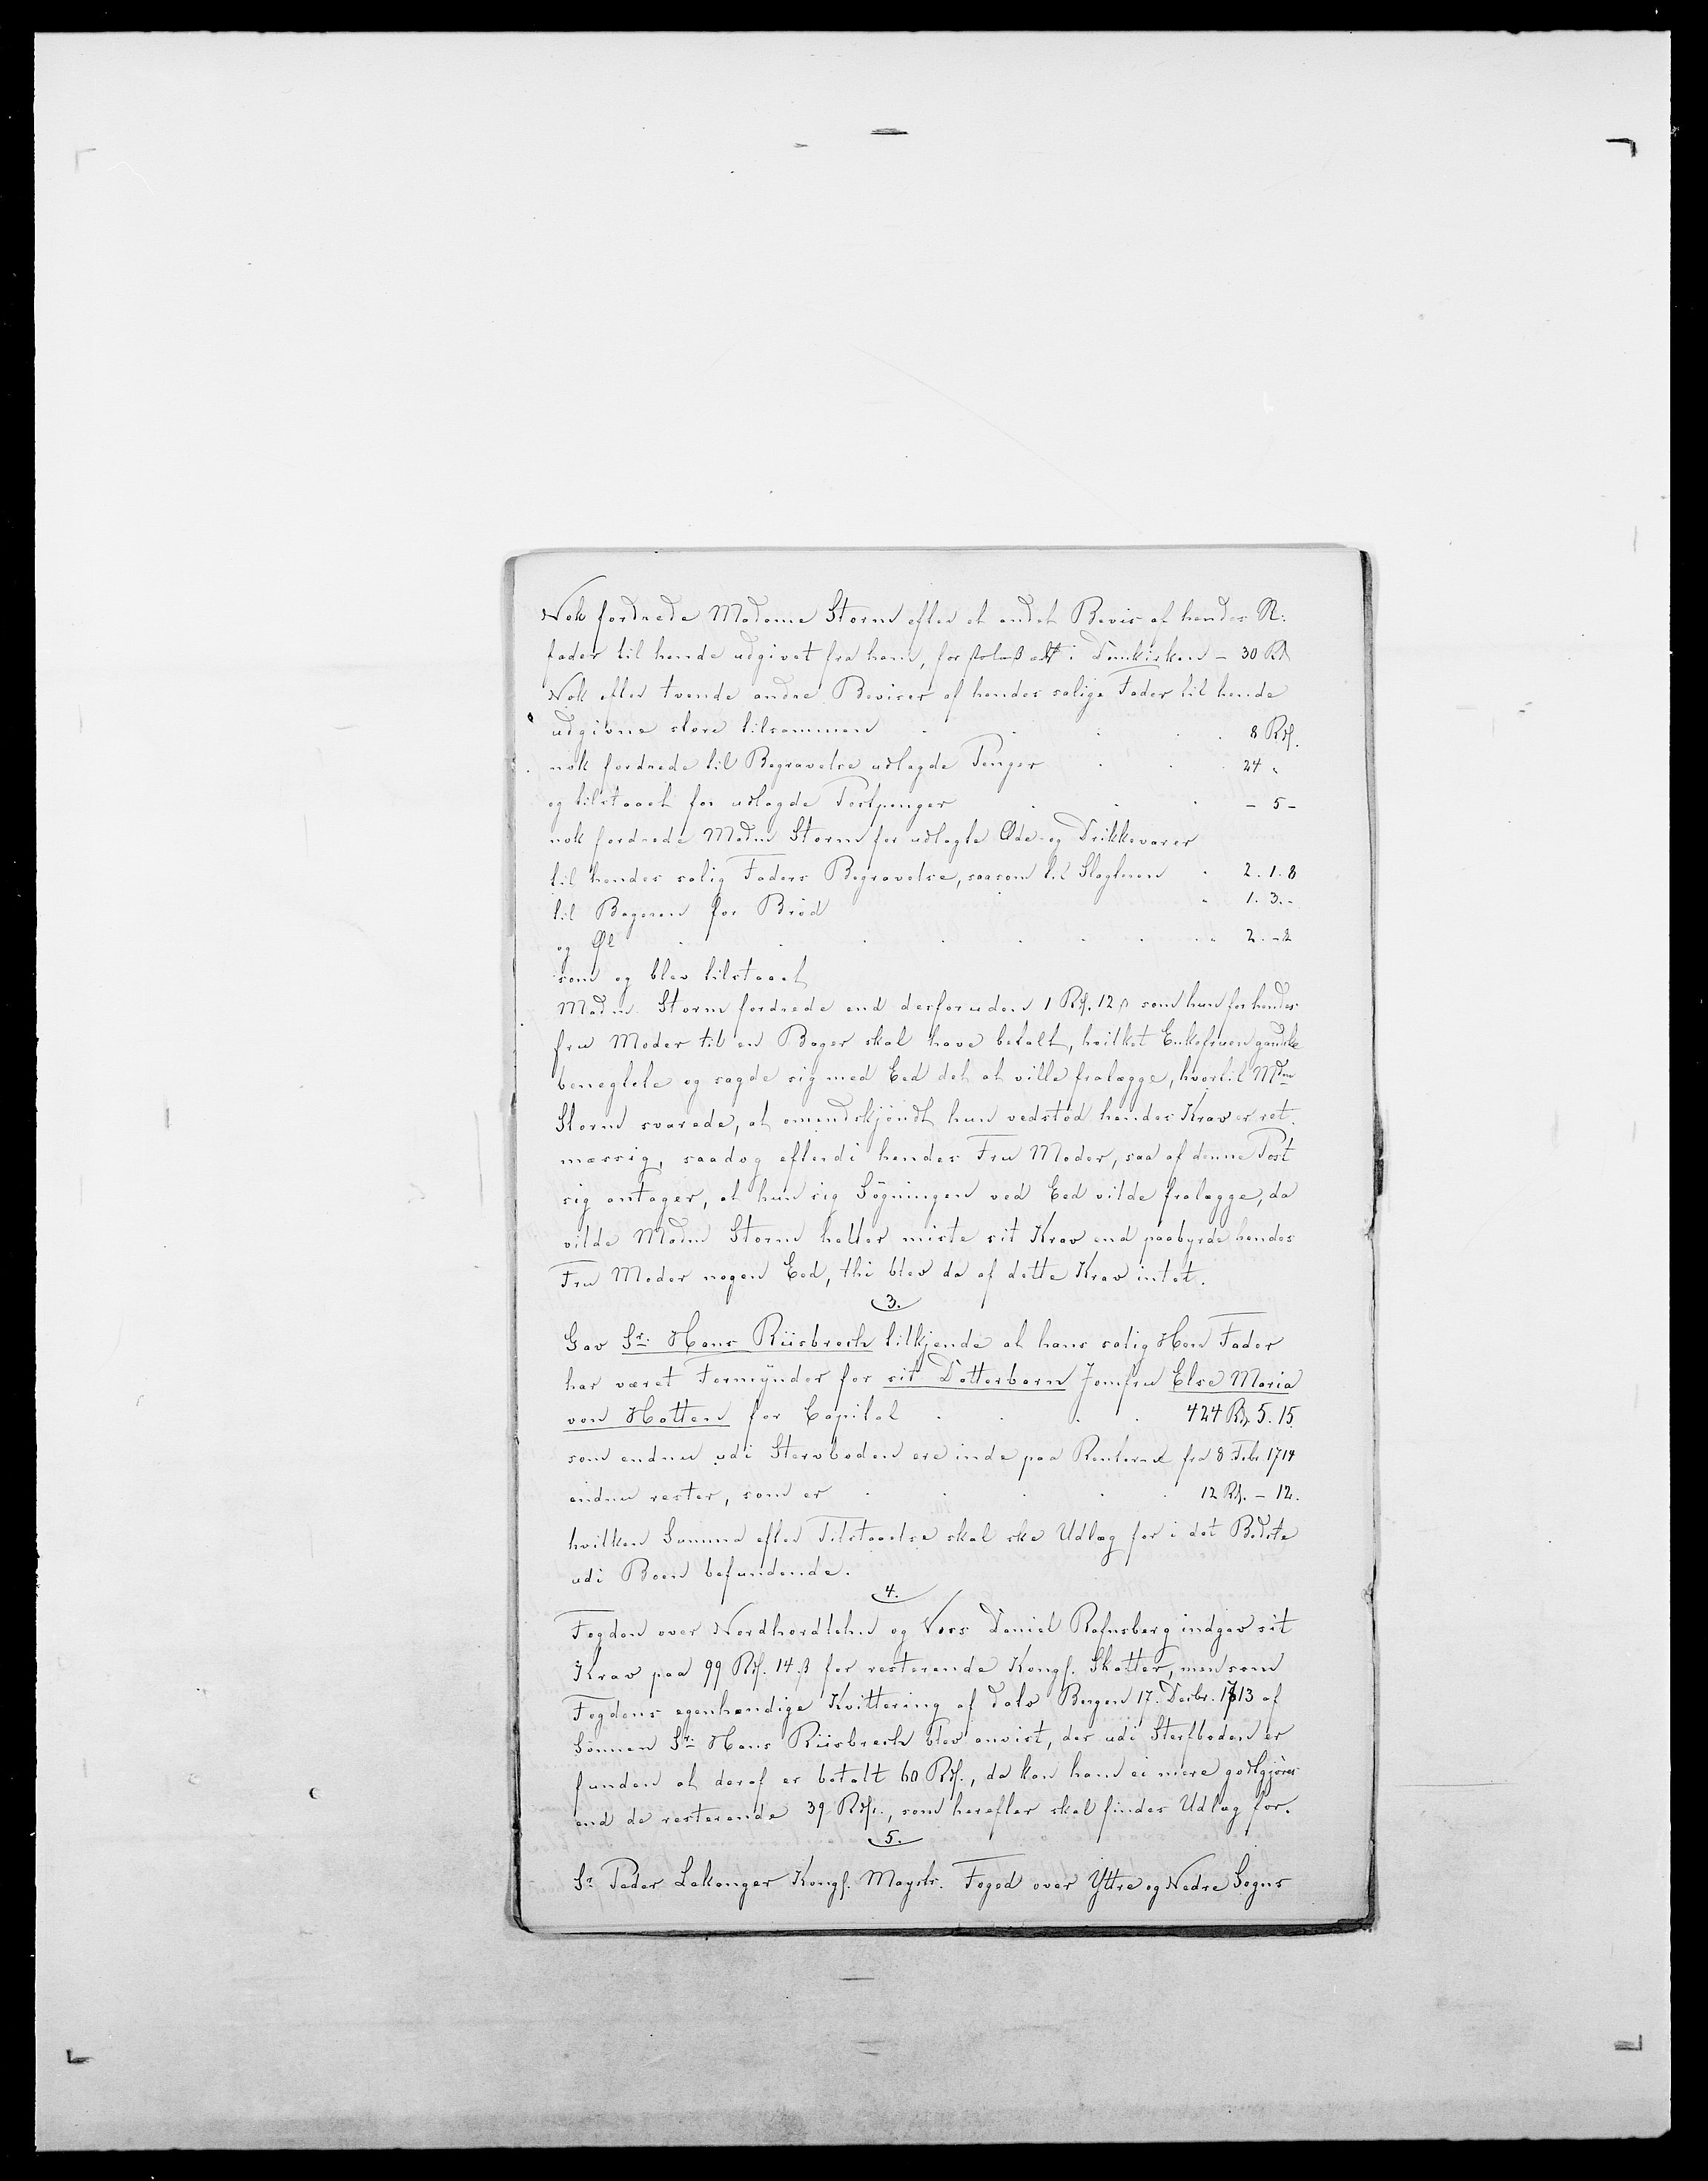 Nok fordrede Madame Storm efter et andet Bevis af hendes Sl:
fader til hende udgivet fra ham, for i Domkirken – 30 Rd
Nok efter tvende andre Beviser af hendes salige Fader til hende
udgivne store tilsammen . . . . 8 Rd.
nok fordrede til Begravelse udlagde Penger . . . 24 "
og tilstaaet for udlagde Postpenger . . . – 5 –
nok fordrede Madm Storm for udlagte Æde- og Drikkevarer
til hendes salig Faders Begravelse, saasom til Slagteren . 2. 1. 8
til Bageren for Brød . 1. 3. -
og Øl . . . . . . . . 2. - 2
som og blev tilstaaet
Madm. Storm fordrede end desforuden 1 Rd. 12 ß som hun for hendes
fru Moder til en Bager skal have betalt, hvilket Enkefruen ganske
benegtete og sagde sig med Eed det at ville fralægge, hvortil Mdm
Storm svarede, at omendskjøndt hun vedstod hendes Krav er ret-
mæssig, saadog efterdi hendes Fru Moder, saa af denne Post
sig antager, at hun sig Søgningen ved Eed vilde fralægge, da
vilde Madm Storm heller miste sit Krav end paabyrde hendes
Fru Moder nogen Eed, thi blev da af dette Krav intet.
3.
Gav Sr. Hans Riisbrech tilkjende at hans salig Herr Fader
har været Formynder for sit Dotterbarn Jomfru Else Maria
von Hatten for Capital . . . . 424 Rd. 5. 15
som endnu udi Stervboden ere inde paa Renterne fra 8 Febr. 1714
endnu rester, som er . . . . 12 Rd. – 12.
hvilken Summa efter Tilstaaelse skal ske Udlæg for i det Bedste
udi Boen befundende.
4.
Fogden over Nordhordlehn og Voss Daniel Rafnsberg indgav sit
Krav paa 99 Rd. 14 ß for resterende Kongl. Skatter, men som
Fogdens egenhændige Kvittering af dato Bergen 17. Decbr. 1713 af
Sønnen Sr. Hans Riisbrech blev anvist, der udi Sterfboden er
funden at deraf er betalt 60 Rd., da kan ham ei mere godtgjøres
end de resterende 39 Rd., som herefter skal findes Udlæg for.
5.
Sr. Peder Lekanger Kongl. Mayts. Foged over Yttre og Nedre Sogns